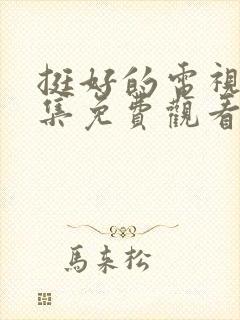 挺好的電視
集免費觀看
馬來松